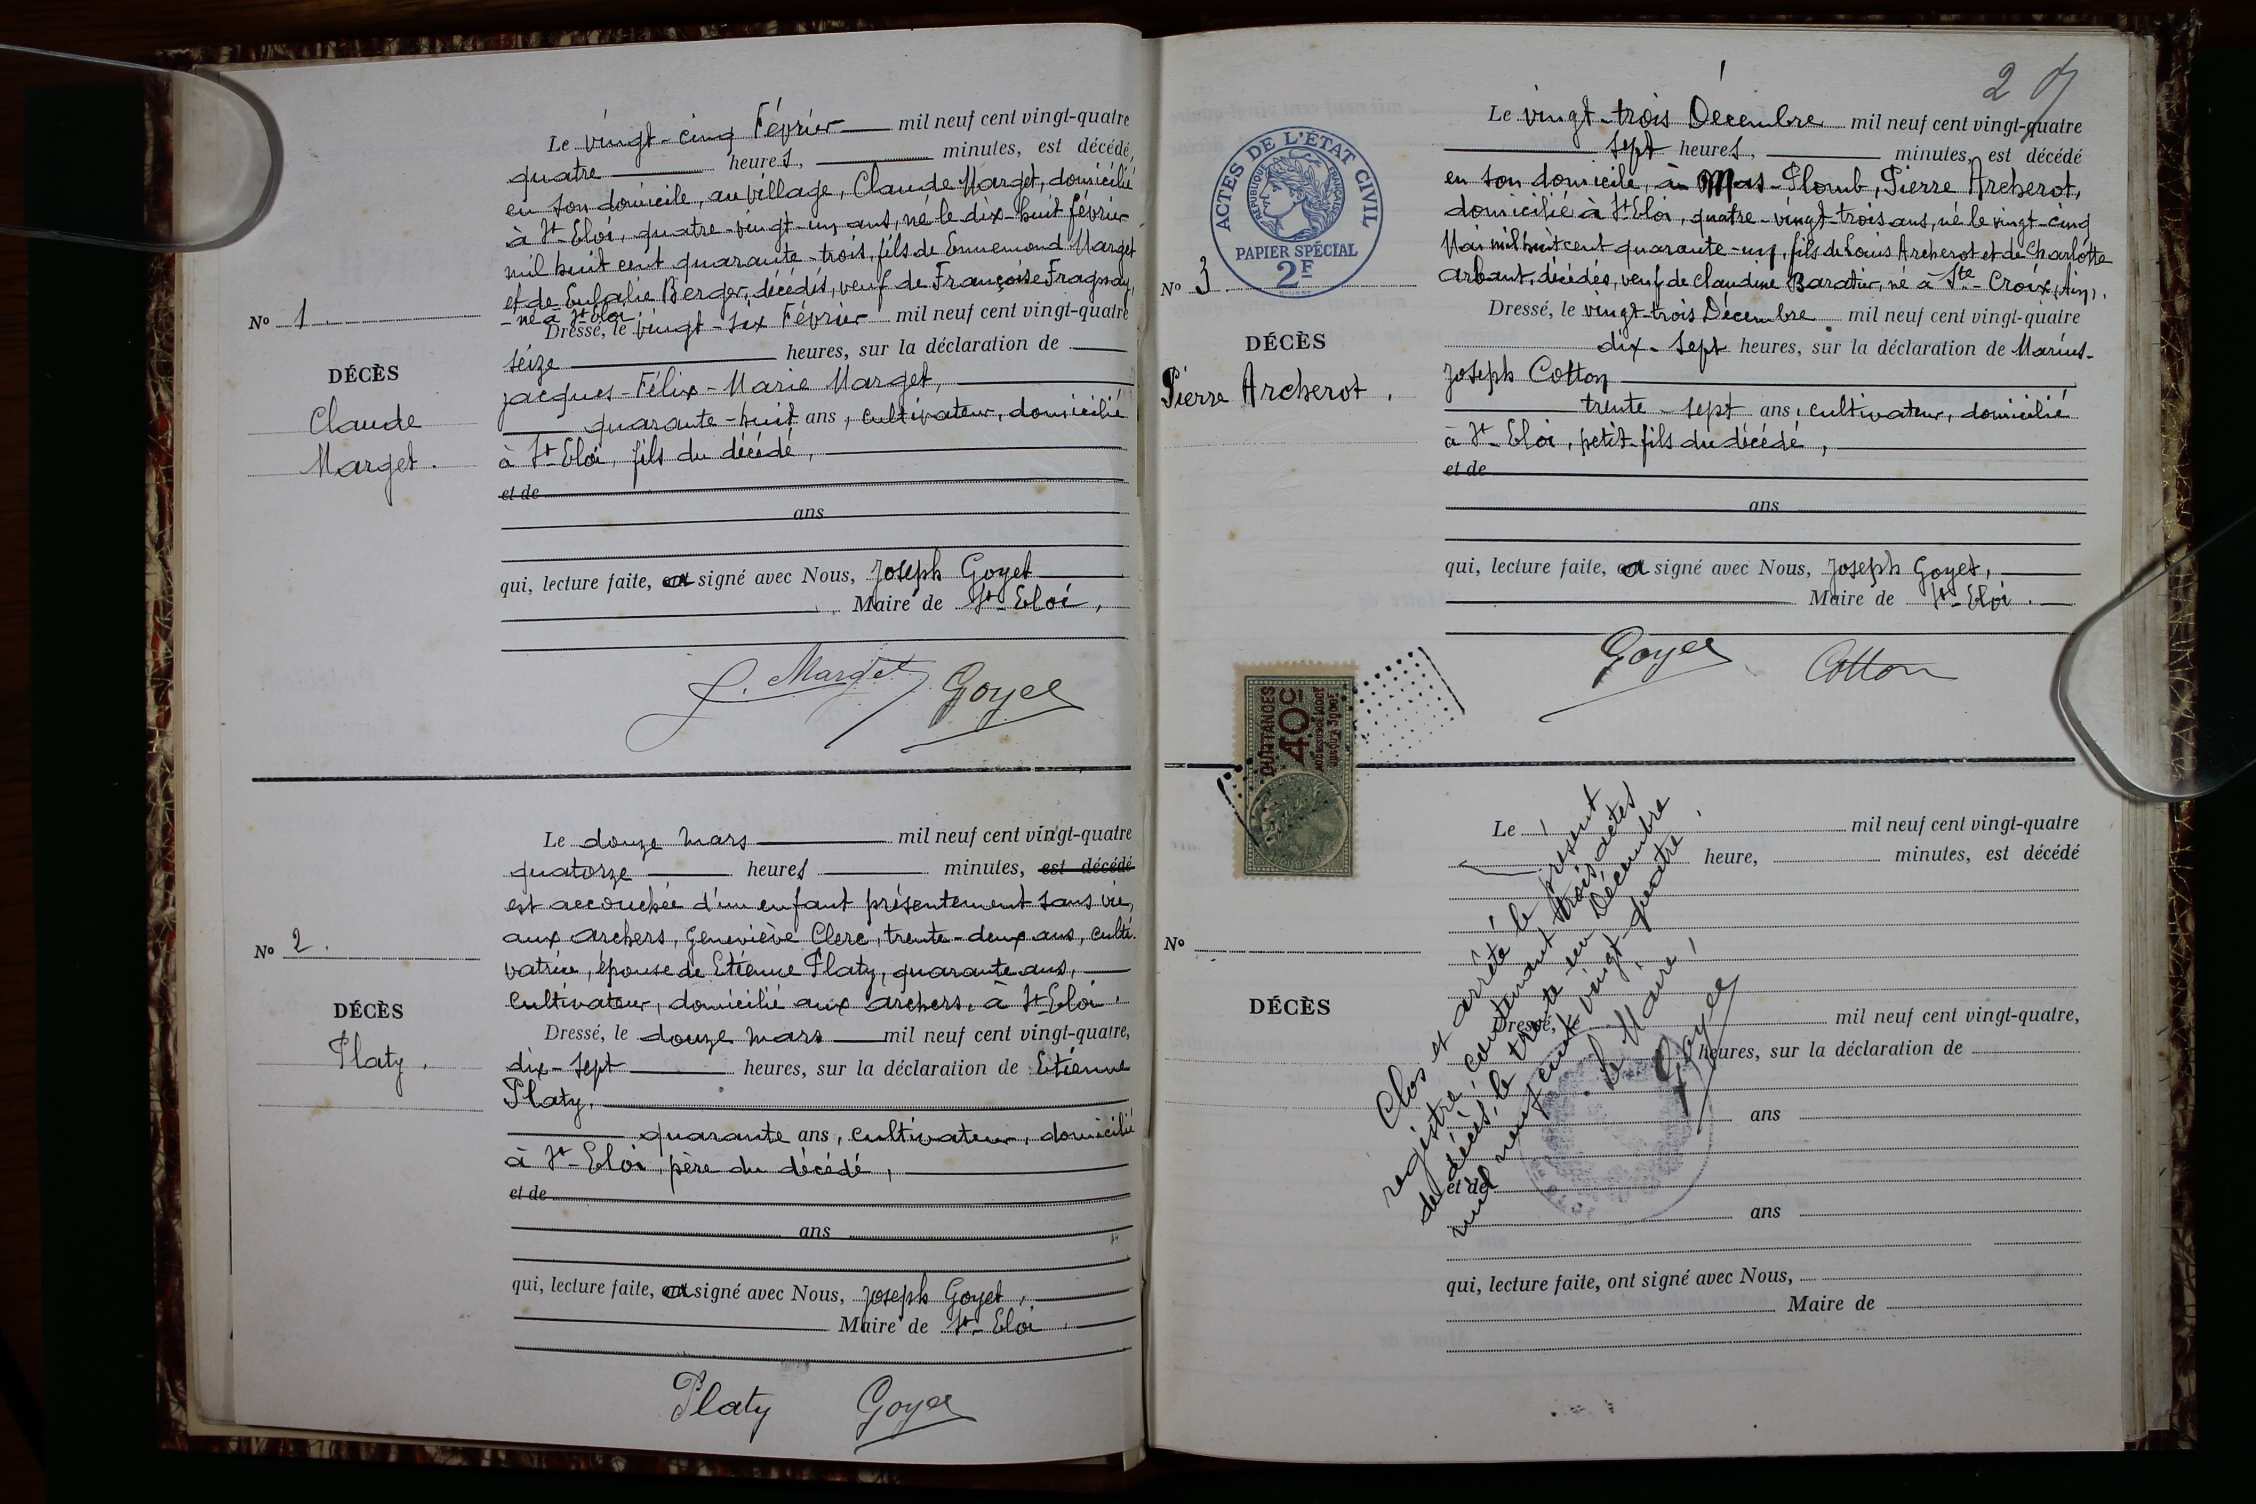 Nº 1
DÉCÈS
Claude
Marget.
Le vingt-cinq Février mil neuf cent vingt-quatre
quatre heures, minutes, est décédé,
en son domicile, au village, Claude Marget, domicilié
à St-Eloi, quatre-vingt-un ans, né le dix-huit février
mil huit cent quarante-trois, fils de Ennemond Marget
et de Eulalie Berger, décédés, veuf de Françoise Fragnay,
- né à St-Eloi.
Dressé, le vingt-six Février mil neuf cent vingt-quatre
seize heures, sur la déclaration de
Jacques-Félix-Marie Marget,
quarante-huit ans, cultivateur, domicilié
à St-Eloi, fils du décédé,
et de
ans
qui, lecture faite, a signé avec Nous, Joseph Goyet
Maire de St-Eloi,
J. Marget Goyet
Nº 2.
DÉCÈS
Platy.
Le douze Mars mil neuf cent vingt-quatre
quatorze heures minutes, est décédé
est accouchée d'un enfant présentement sans vie,
aux Archers, Geneviève Clerc, trente-deux ans, culti-
vatrice, épouse de Etienne Platy, quarante ans,
cultivateur, domicilié aux Archers, à St-Eloi.
Dressé, le douze Mars mil neuf cent vingt-quatre,
dix-sept heures, sur la déclaration de Etienne
Platy,
quarante ans, cultivateur, domicilié
à St-Eloi, père du décédé,
et de
ans
qui, lecture faite, a signé avec Nous, Joseph Goyet,
Maire de St-Eloi.
Platy Goyet
2
ACTES DE L'ÉTAT CIVIL
RÉPUBLIQUE FRANÇAISE
PAPIER SPÉCIAL
2F
Nº 3
DÉCÈS
Pierre Archerot.
Le vingt-trois Décembre mil neuf cent vingt-quatre
sept heures, minutes, est décédé
en son domicile, à Mas-Plomb, Pierre Archerot,
domicilié à St-Eloi, quatre-vingt-trois ans, né le vingt-cinq
Mai mil huit cent quarante-un, fils de Louis Archerot et de Charlotte
Arbant, décédés, veuf de Claudine Baratier, né à Ste-Croix (Ain).
Dressé, le vingt-trois Décembre mil neuf cent vingt-quatre
dix-sept heures, sur la déclaration de Marius-
Joseph Cotton
trente-sept ans, cultivateur, domicilié
à St-Eloi, petit-fils du décédé,
et de
ans
qui, lecture faite, a signé avec Nous, Joseph Goyet,
Maire de St-Eloi.
Goyet Cotton
QUITTANCES
40c
Nº
DÉCÈS
Le mil neuf cent vingt-quatre
heure, minutes, est décédé
Dressé, le mil neuf cent vingt-quatre,
heures, sur la déclaration de
ans
et de
ans
qui, lecture faite, ont signé avec Nous,
Maire de
Clos et arrêté le présent
registre, contenant trois actes
de décès, le trente-un Décembre
mil neuf cent vingt-quatre.
Le Maire,
Goyet